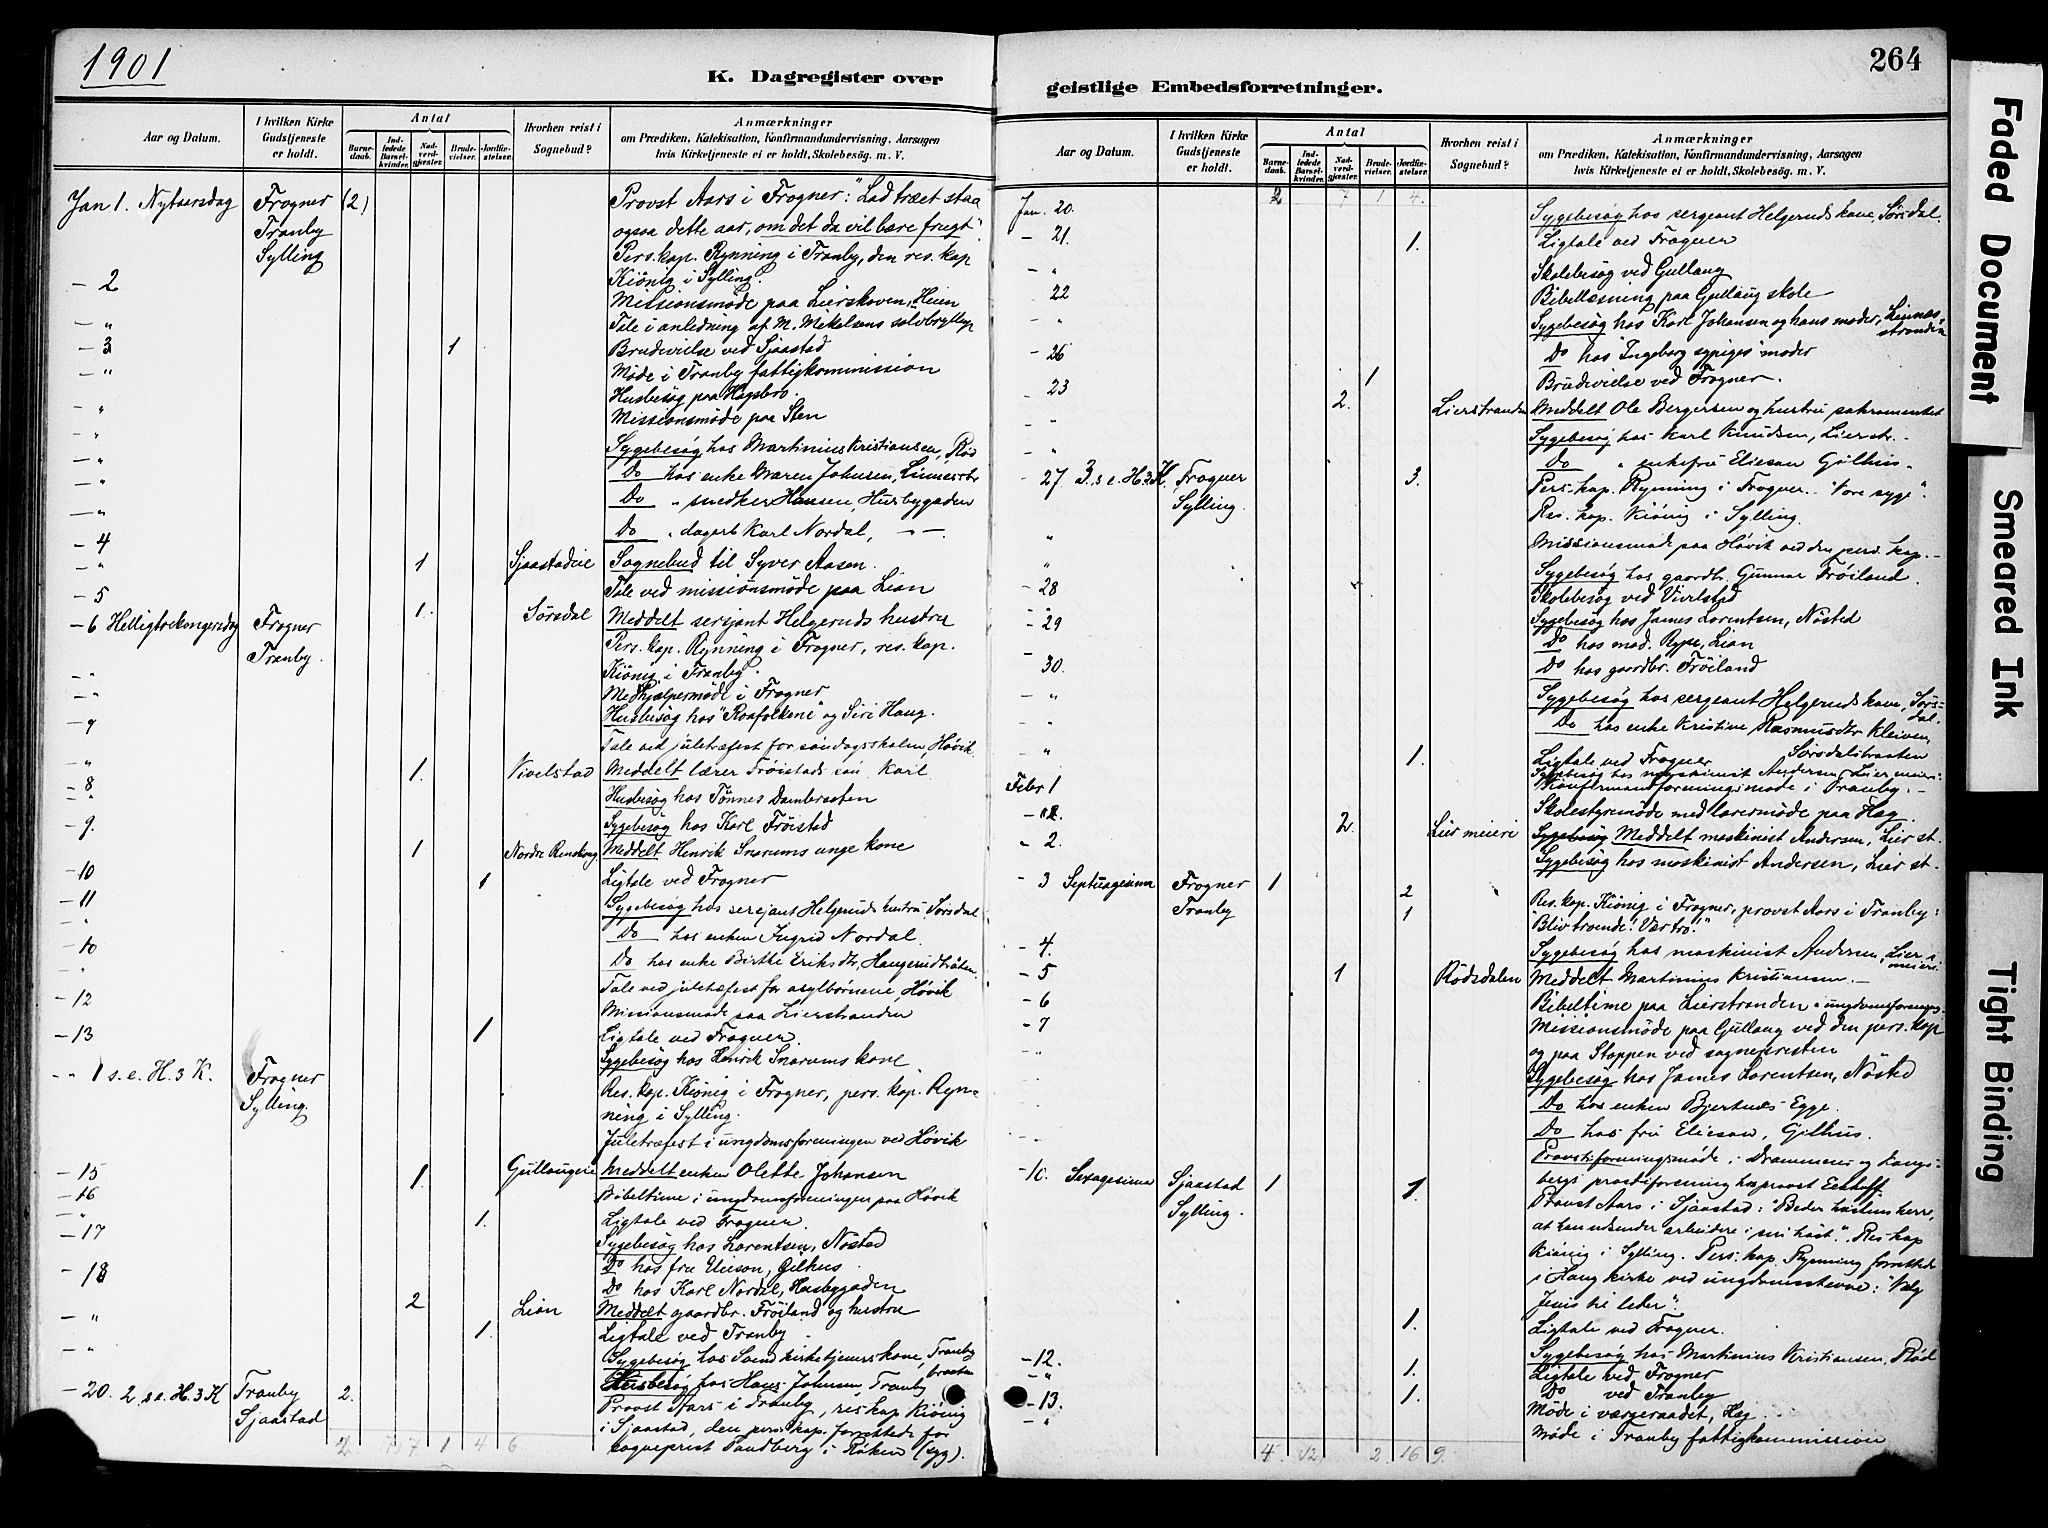 1901
264
K. Dagregister over
geistlige Embedsforretninger.
Aar og Datum.
I hvilken Kirke Gudstjeneste er holdt.
Antal
Barnedaab.
Indledede Barselkvinder.
Nadverdgjæster.
Brudevielser.
Jordfæstelser.
Hvorhen reist i Sognebud?
Anmærkninger
om Prædiken, Katekisation, Konfirmandundervisning, Aarsagen
hvis Kirketjeneste ei er holdt, Skolebesøg. m. V.
Jan 1. Nytaarsdag Frogner (2) Provst Aars i Frogner: "Lad træet staa
Tranby ogsaa dette aar, om det da vil bære frugt".
Sylling Pers. kap. Rynning i Tranby, den res. kap
Kiönig i Sylling.
- 2 Missionsmøde paa Lierskoven, Heim
- " Tale i anledning af M. Mikelsens sølvbryllup
- 3 1 Brudevielse ved Sjaastad
- " Møde i Tranby fattigkommission
Husbesøg paa Hagsbro.
- " Missionsmøde paa Sten
- " Sygebesøg hos Martinius Kristiansen, Rød
- " Do hos enke Maren Johnsen, Linnesstr
- " Do " smedker Hansen, Husbygaden
- " Do " dagarb Karl Nordal, - " -
- 4 1 Sjaastadeie Sognebud til Syver Aasen.
- " Tale ved missionsmöde paa Lian
- 5
- 6 Helligtrekongersdag Frogner 1. Sørsdal Meddelt sersjant Helgeruds hustru
Tranby. Pers. kap. Rynning i Frogner, res. kap.
Kiönig i Tranby.
- " Medhjælpermöde i Frogner
- " Husbesøg hos "Roafolkene" og Siri Haug.
- 7 Tale ved juletræfest for søndagsskolen, Høvik
- " 1. Vivelstad Meddelt lærer Frøistads søn Karl.
- 8 Husbesøg hos Tønnes Dambraaten
- " Sygebesøg hos Karl Frøistad
- 9. 1 Nordre Renskoug Meddelt Henrik Snarums unge kone
- 10 1 Ligtale ved Frogner
- 11 Sygebesøg hos sersjant Helgeruds hustru Sørsdal
- " Do hos enken Ingrid Nordal.
- 10 Do hos enke Birthe Eriksdtr, Haugerudbråten.
- " Tale ved juletræfest for asylbørnene, Høvik
- 12 Missionsmøde paa Lierstranden
- 13 1 Ligtale ved Frogner.
Sygebesøg hos Henrik Snarums kone
- " 1 s. e. H. 3 K. Frogner Res. kap. Kiönig i Frogner, pers. kap. Ryn-
Sylling. ning i Sylling.
Juletræfest i ungdomsforeningen ved Høvik
- 15 1. Gullaugeie Meddelt enken Olette Johansen
- 16 Bibeltime i ungdomsforeningen paa Høvik
- " 1. Ligtale ved Frogner.
- 17 Sygebesøg hos Lorentsen, Nøsted
Do hos fru Elieson, Gilhus.
- 18 Do hos Karl Nordal, Husbygaden
2 Lian Meddelt gaardbr. Frøiland og hustru
- " 1. Ligtale ved Tranby
- " Sygebesøg hos Svend kirketjeners kone, Tranby
braaten
Husbesøg hos Hans Johnsen, Tranby
- 20. 2 s. e. H. 3 K Tranby 2. Provst Aars i Tranby, res kap Kiönig
Sjaastad i Sjaastad, den pers. kap. forrettede for
sogneprest Tandberg i Røken (syg).
2 7 1 4 6
2 7 1 4.
Jan. 20. Sygebesøg hos sergeant Helgeruds kone, Sørsdal.
- 21. 1. Ligtale ved Frogner
- " Skolebesøg ved Gullaug
- 22 Bibellæsning paa Gullaug skole
- " Sygebesøg hos Karl Johansen og hans moder, Linnes-
stranden
- 26 Do hos "Ingeborg sypiges" moder
- 23 1 Brudevielse ved Frogner.
2. Lierstranden Meddelt Ole Bergersen og hustru sakramentet
- " Sygebesøg hos Karl Knudsen, Lierstr. -
- " Do " enkefru Elieson Gilhus.
- 27 3. s. e. H. 3 K. Frogner 3. Pers. kap. Rynning i Frogner. "Vore syge".
Sylling. Res. kap. Kiönig i Sylling.
" Missionsmøde paa Høvik ved den pers. kap. -
" Sygebesøg hos gaardbr. Gunnar Frøiland.
- 28 Skolebesøg ved Vivelstad
- " Sygebesøg hos James Lorentsen, Nøsted
- 29 Do hos mad. Rype, Lian
- 30. Do hos gaardbr. Frøiland
- " Sygebesøg hos sergeant Helgeruds kone, Sørs-
dal.
- " Do hos enke Kristine Rasmusdtr Kleiven,
Sørsdalsbraaten
- " 1. Ligtale ved Frogner
Sygebesøg hos maskinist Andersen, Lier meieri
Febr 1 Konfirmandforeningsmøde i Tranby. -
Skolestyremøde med lærermøde paa Hæg
2. Lier meieri Sygebesøg Meddelt maskinist Andersen, Lier st.
- 2. Sygebesøg hos maskinist Andersen, Lier st.
- 3 Septuagesima Frogner 1 2 Res. kap. Kiönig i Frogner, provst Aars i Tranby:
Tranby 1 "Bliv troende! Vær tro!"
- 4. Sygebesøg hos maskinist Andersen, Lier
meieri
- 5 1 Rødsdalen Meddelt Martinius Kristiansen -
- 6 Bibeltime paa Lierstranden i ungdomsforening
- 7 Missionsmøde paa Gullaug ved den pers. kap
og paa Stoppen ved sognepresten
Sygebesøg hos James Lorentsen, Nøsted
Do hos enken Bjertnes Egge.
Do hos fru Elieson, Gilhus.
Provstiforeningsmøde i Drammens og Kongs-
bergs provstiforening hos provst
- 10. Sexagesima Sjaastad 1 1. Provst Aars i Sjaastad: "Beder høstens herre,
Sylling. at han udsender arbeidere i sin høst". Res kap
Kiönig i Sylling. Pers. kap. Rynning forrettede
i Haug kirke ved ungdomsstevne: "Vælg
Jesus til leder".
1. Ligtale ved Frogner.
- 12. Sygebesøg hos Martinius Kristiansen, Rød
- " 1. Ligtale ved Frogner
- 13. 1. Do ved Tranby
- " Møde i værgeraadet, Hæg
Møde i Tranby fattigkommission
4 12 2 16 9.
Faded Document
Smeared Ink
Tight Binding